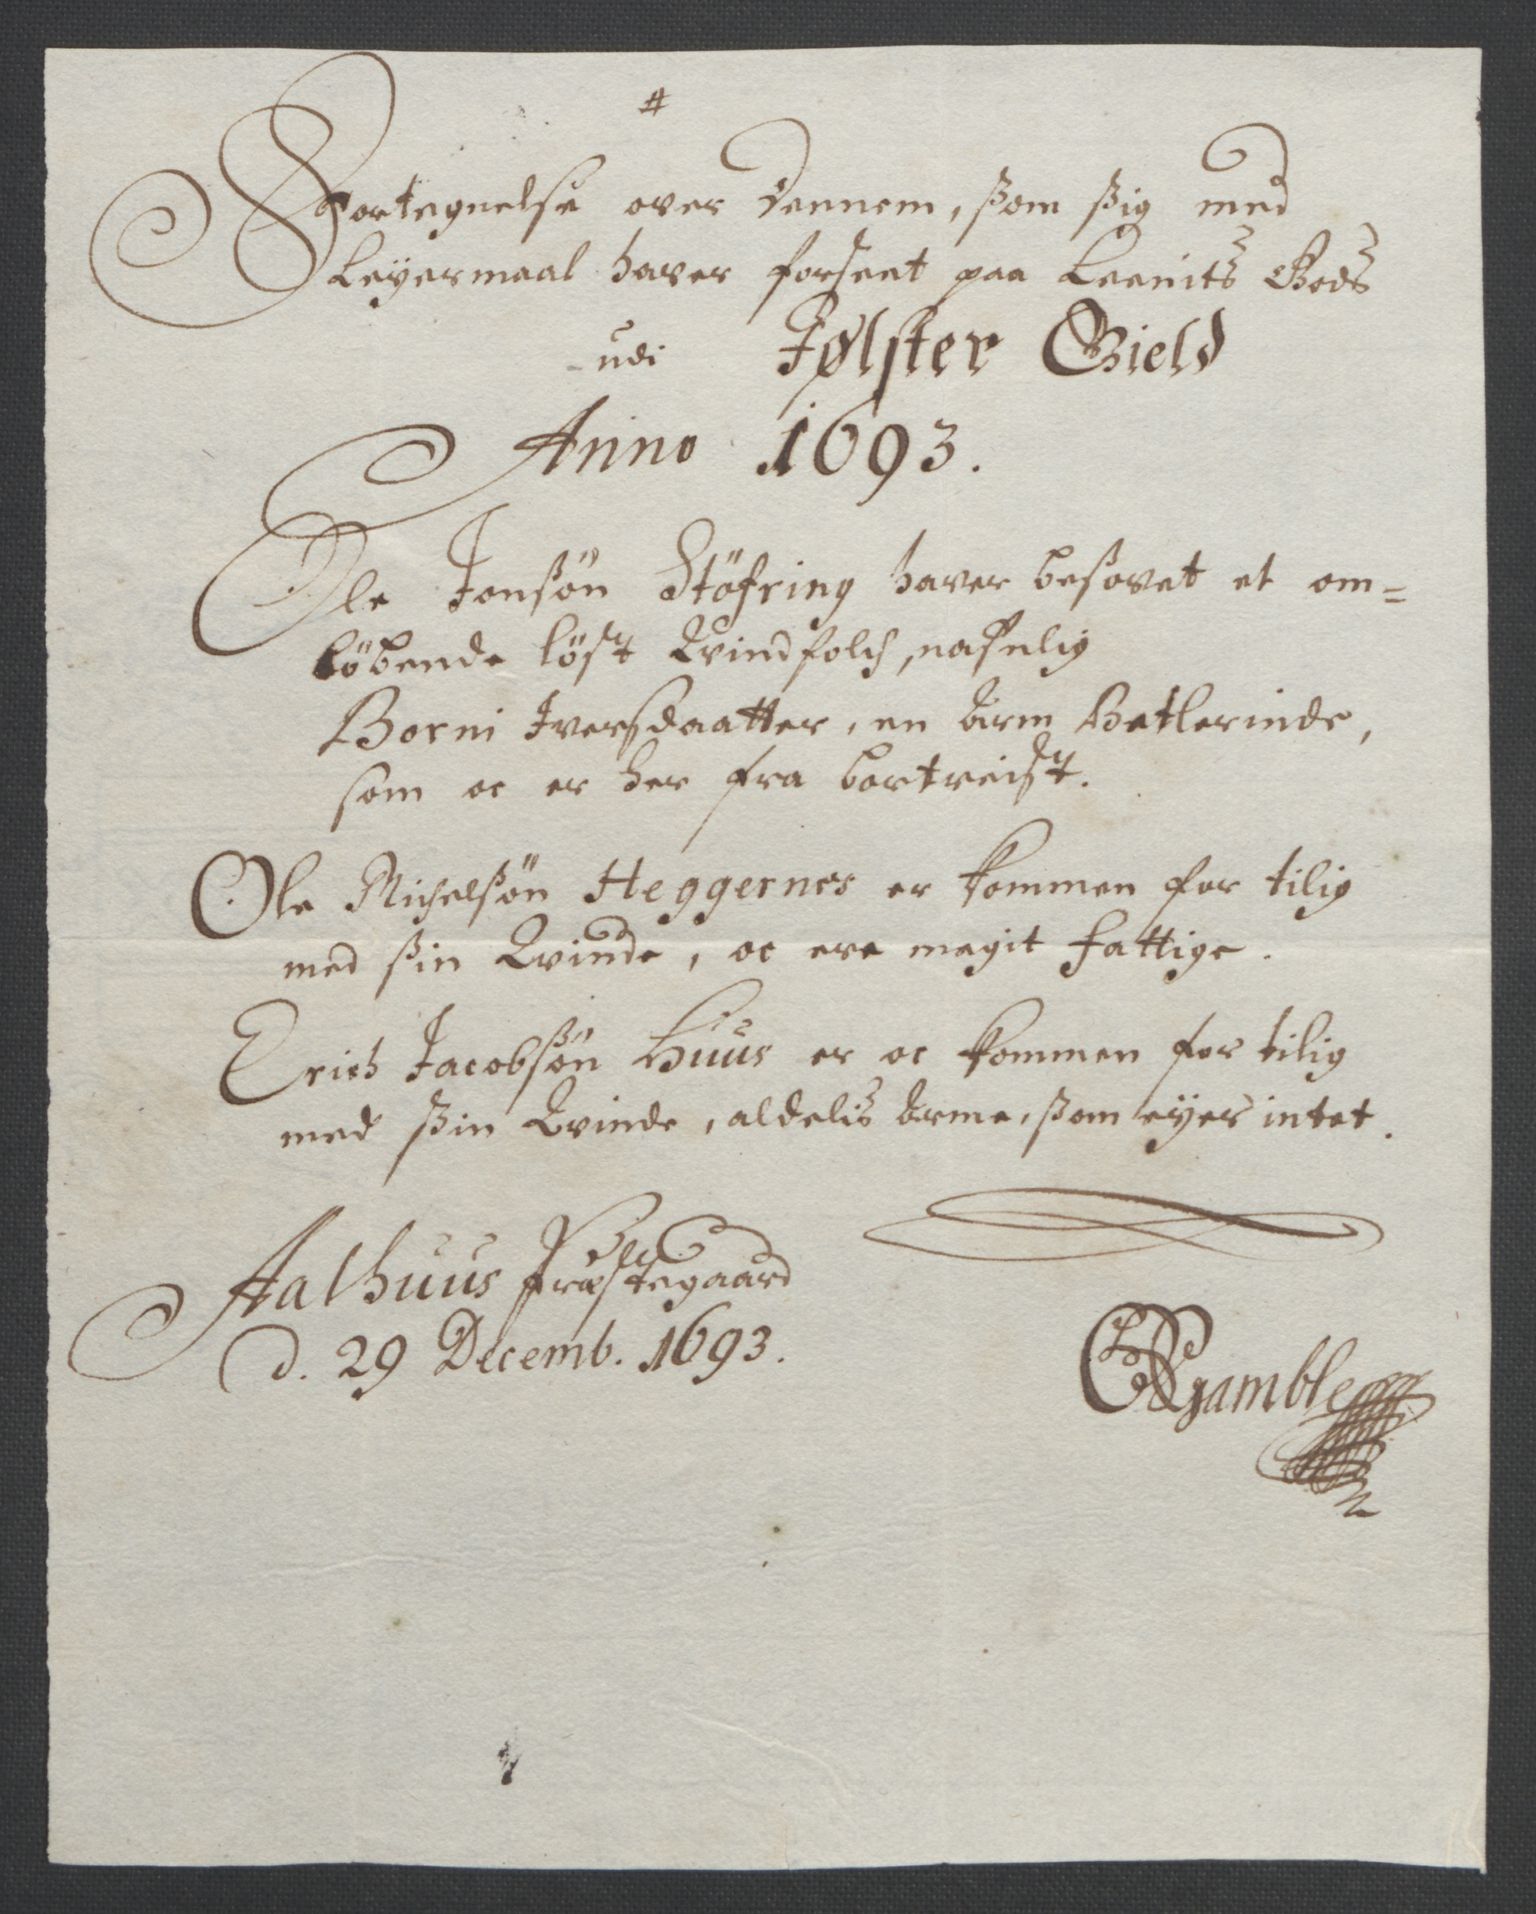 #
Fortegnelse over dennem, som sig med
Leyermaal haver forseet paa Leenits Gods
udi Jølster Gield
Anno 1693.
Ole Jonsøn Støfring haver besovet et om=
løbende løst Qvindfolch, nafnlig
Borni Iversdaatter, en Arm Betlerinde,
som oc er her fra bortreist.
Ole Michelsøn Heggernes er kommen for tilig
med sin Qvinde, oc ere megit fattige.
Erich Jacobsøn Huus er oc kommen for tilig
med sin Qvinde, aldelis Arme, som eyer intet.
Aalhuus Præstegaard
d. 29 Decemb. 1693.
Gamble